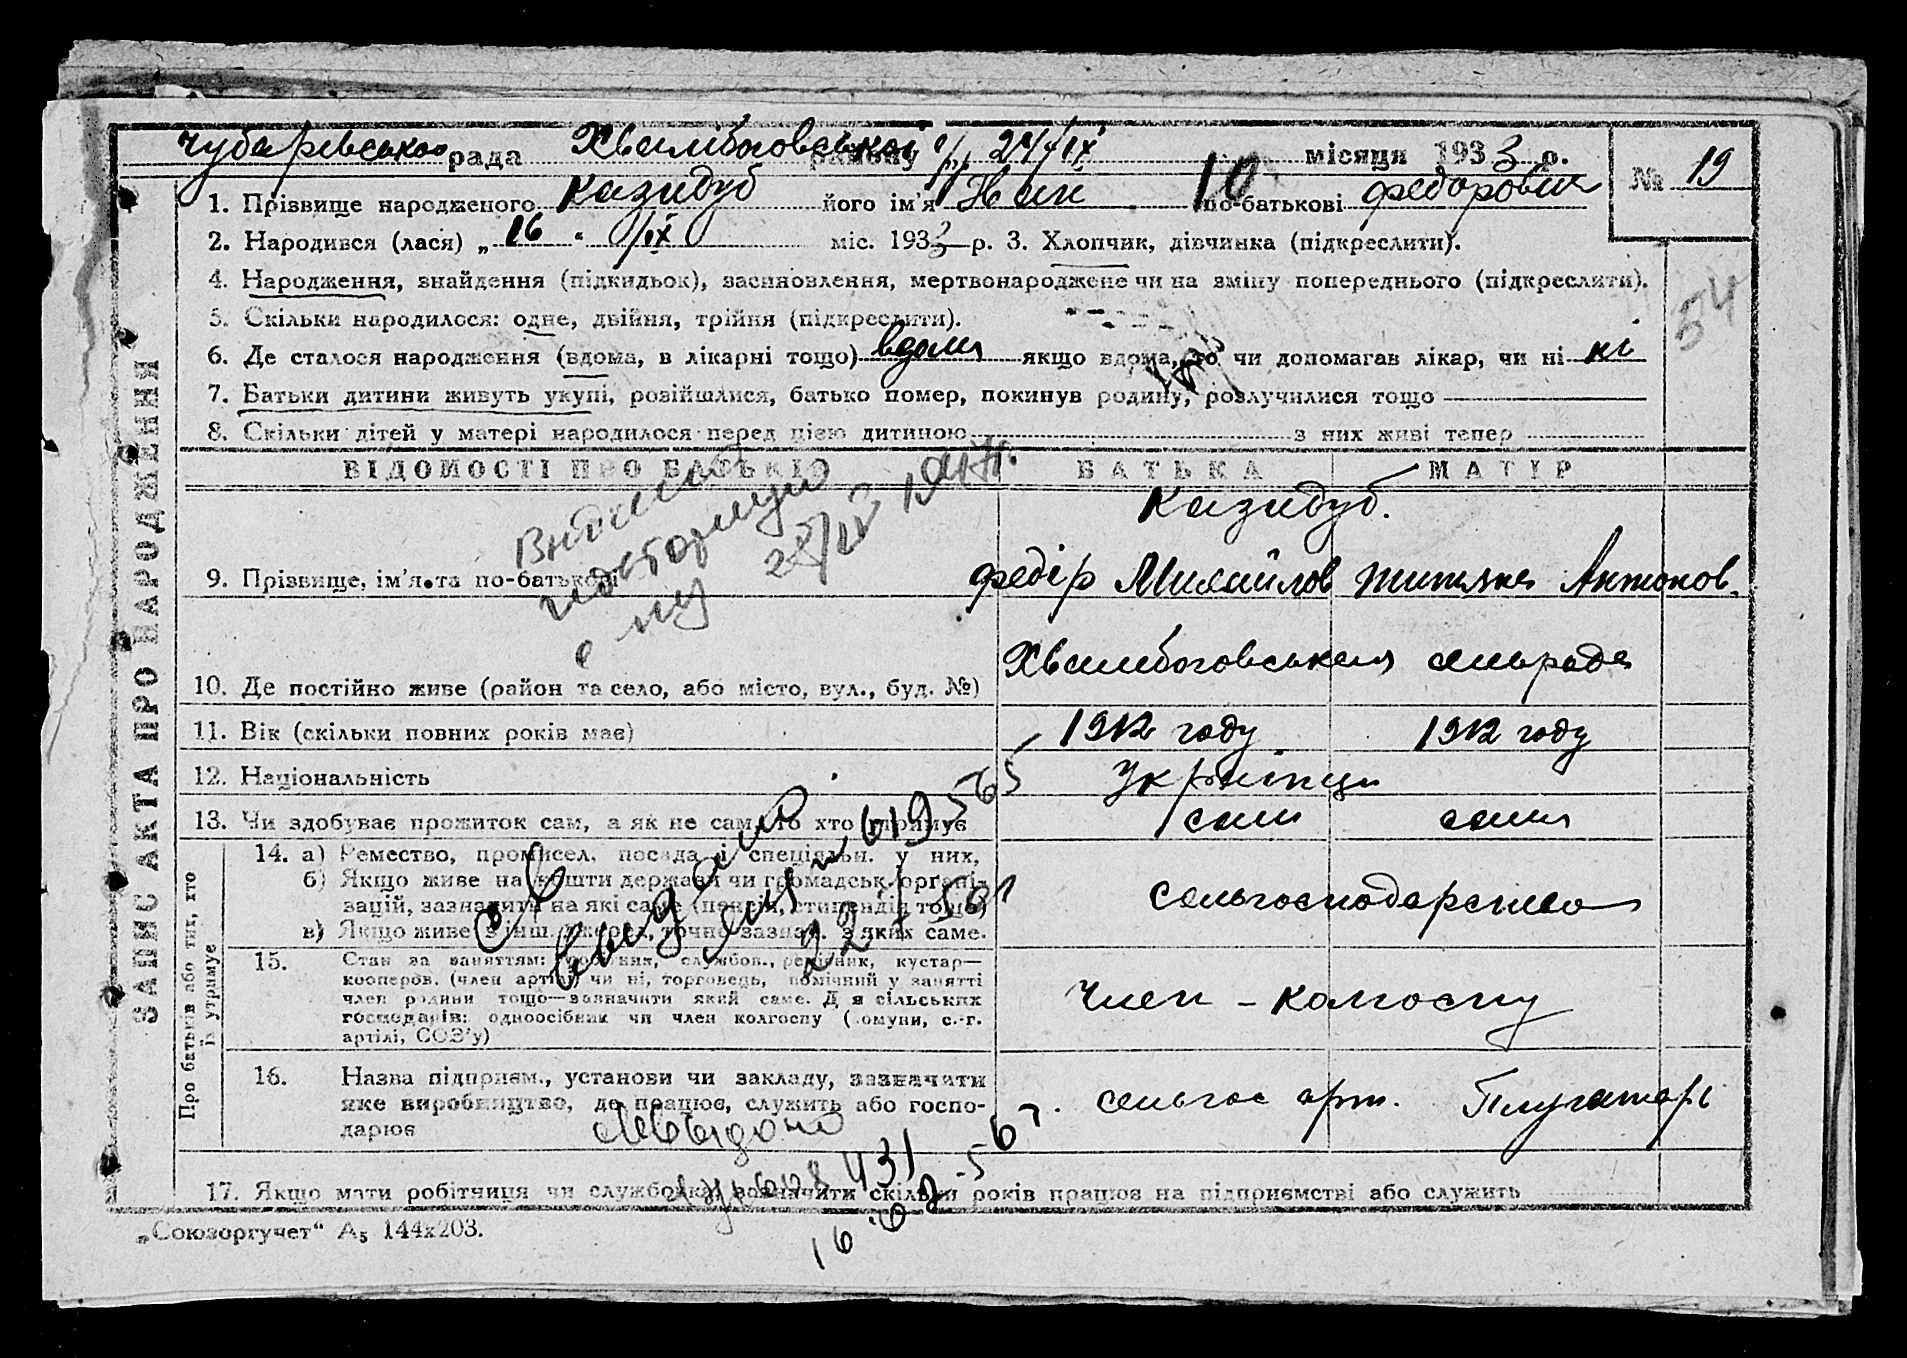 Чубарівського рада Хвалибоговської району с/р 24/ІХ місяця 1933 р. № 19
1. Прізвище народженого Казидуб його ім'я 10 по-батькові Федорович
2. Народився (лася) „16" ІХ міс. 1933 р. 3. Хлопчик, дівчинка (підкреслити).
4. Народження, знайдення (підкидьок), засиновлення, мертвонароджене чи на зміну попереднього (підкреслити).
54
5. Скільки народилося: одне, двійня, трійня (підкреслити).
6. Де сталося народження (вдома, в лікарні тощо) вдома якщо вдома, то чи допомагав лікар, чи ні ні
7. Батьки дитини живуть укупі, розійшлися, батько помер, покинув родину, розлучилися тощо
8. Скільки дітей у матері народилося перед цією дитиною з них живі тепер
ВІДОМОСТІ ПРО БАТЬКІВ БАТЬКА МАТІР
Казидуб.
9. Прізвище, ім'я та по-батькові Федір Михайлов Титяна Антонов.
10. Де постійно живе (район та село, або місто, вул., буд. №) Хвалибоговськая сельрада
11. Вік (скільки повних років має) 1912 году 1912 году
12. Національність Українци
13. Чи здобуває прожиток сам, а як не сам, то хто утримує сам сама
14. а) Ремество, промисел, посада і спеціяльн. у них,
б) Якщо живе на кошти держави чи громадськ. органі-
зацій, зазначити на які саме (пенсія, стипендія тощо)
в) Якщо живе з інш. джерел, точно зазнач. з яких саме.
сельгосподарство
15. Стан за заняттям: робітник, службов., ремісник, кустар—
кооперов. (член артілі) чи ні, торговець, помічний у занятті
член родини тощо—зазначити який саме. Для сільських
господарів: одноосібник чи член колгоспу (комуни, с.-г.
артілі, СОЗ'у)
Член - колгоспу
16. Назва підприєм., установи чи закладу, зазначити
яке виробництво, де працює, служить або госпо-
дарює
сельгос арт. Плугатарь
17. Якщо мати робітниця чи службовка, зазначити скільки років працює на підприємстві або служить
„Союзоргучет" А5 144х203.
ЗАПИС АКТА ПРО НАРОДЖЕННЯ
Про батьків або тих, хто
їх утримує